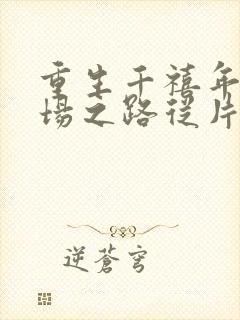 重生千禧年
場之路從片
逆蒼穹